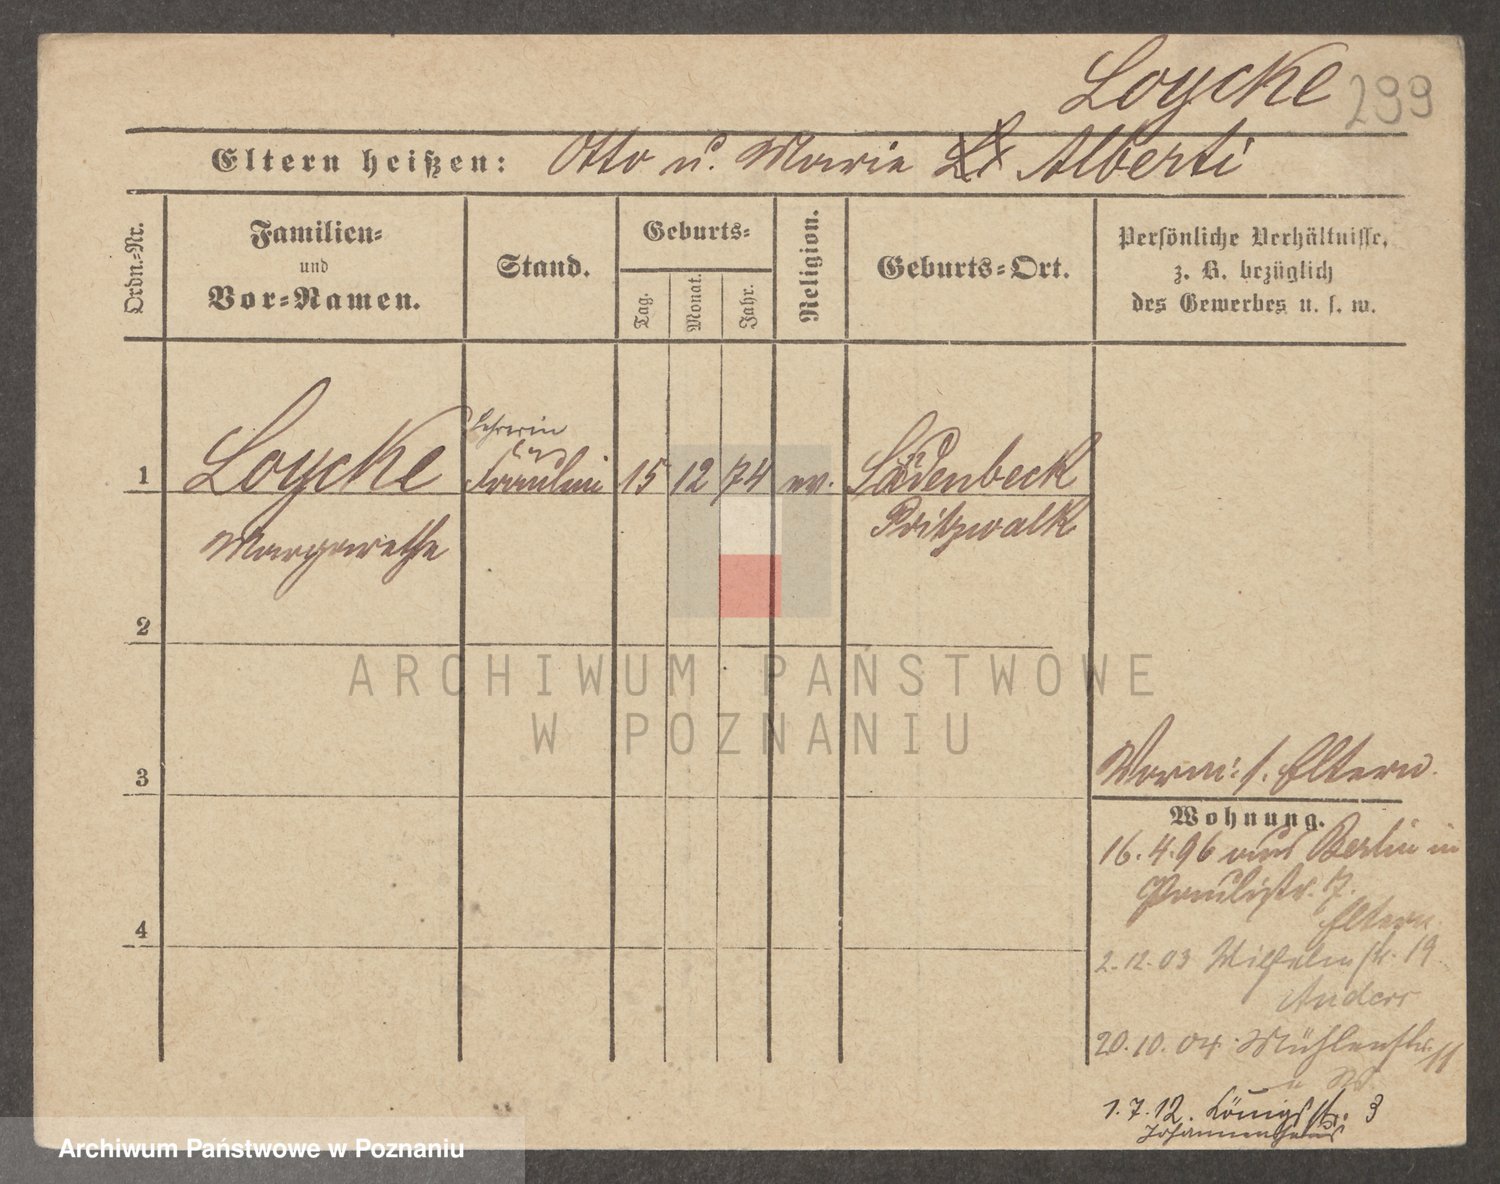 Loycke 299
Eltern heißen: Otto u. Marie Alberti
Ordn.-Nr.
Familien-
und
Vor-Namen.
Stand.
Geburts-
Tag.
Monat.
Jahr.
Religion.
Geburts-Ort.
Persönliche Verhältnisse,
z. B. bezüglich
des Gewerbes u. s. w.
Lehrerin
1 Loycke Fräulein 15 12 74 ev. Sadenbeck
Margarethe Pritzwalk
2
ARCHIWUM PAŃSTWOWE
W POZNANIU
3
Vorm: s. Eltern.
Wohnung.
16.4.96 aus Berlin in
Paulistr. 7.
Eltern.
4
2.12.03 Wilhelmstr. 19
Anders
20.10.04. Mühlenstr. 11
1.7.12. Königsstr. 3
Johannenhaus
Archiwum Państwowe w Poznaniu